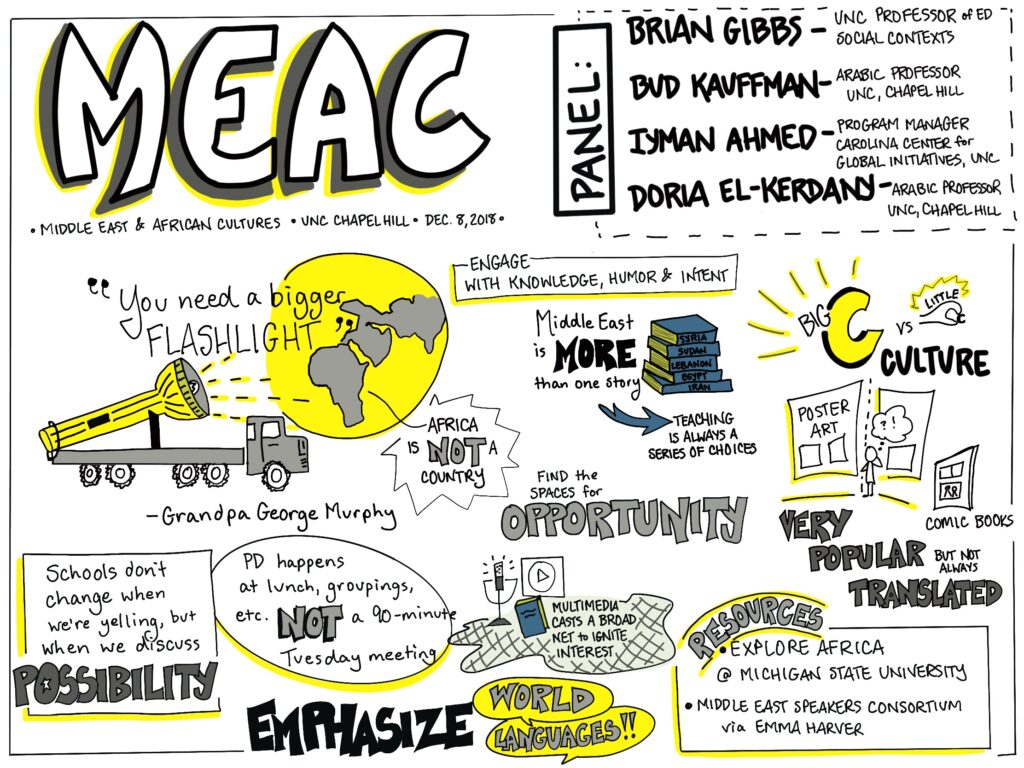 MEAC
• MIDDLE EAST & AFRICAN CULTURES • UNC CHAPEL HILL • DEC. 8, 2018 •
PANEL:
BRIAN GIBBS – UNC PROFESSOR of ED
SOCIAL CONTEXTS
BUD KAUFFMAN – ARABIC PROFESSOR
UNC, CHAPEL HILL
IYMAN AHMED – PROGRAM MANAGER
CAROLINA CENTER for
GLOBAL INITIATIVES, UNC
DORIA EL-KERDANY – ARABIC PROFESSOR
UNC, CHAPEL HILL
"You need a bigger
FLASHLIGHT"
AFRICA
IS NOT A
COUNTRY
– Grandpa George Murphy
ENGAGE
WITH KNOWLEDGE, HUMOR & INTENT
Middle East
is MORE
than one story
SYRIA
SUDAN
LEBANON
EGYPT
IRAN
TEACHING
IS ALWAYS A
SERIES OF CHOICES
FIND the
SPACES for
OPPORTUNITY
BIG C
VS
LITTLE
C
CULTURE
POSTER
ART
?
COMIC BOOKS
VERY
POPULAR BUT NOT
ALWAYS
TRANSLATED
Schools don't
change when
we're yelling, but
when we discuss
POSSIBILITY
PD happens
at lunch, groupings,
etc. NOT a 90-minute
Tuesday meeting
MULTIMEDIA
CASTS A BROAD
NET to IGNITE
INTEREST.
EMPHASIZE
WORLD
LANGUAGES!!
RESOURCES
• EXPLORE AFRICA
@ MICHIGAN STATE UNIVERSITY
• MIDDLE EAST SPEAKERS CONSORTIUM
via EMMA HARVER